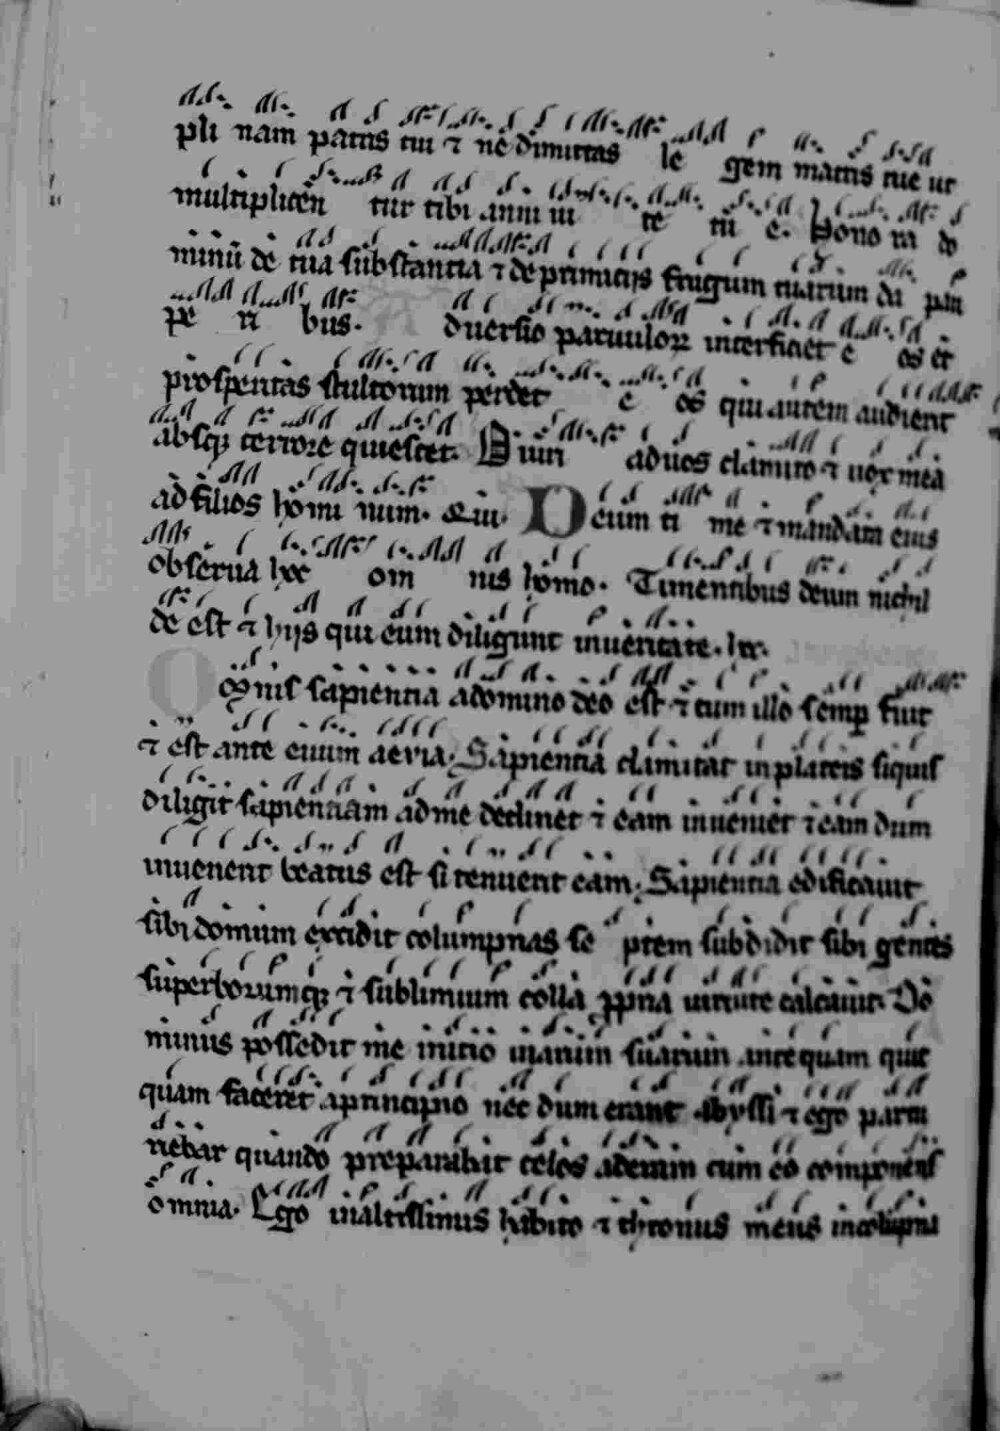 pli nam patris tui ⁊ ne dimittas le gem matris tue ut
multiplicen tur tibi anni ui te tu e. Hono ra do
minū de tua substantia ⁊ de primicijs frugum tuarum da pau
pe ri bus. duersio paruulorꝝ interficiet e os et
prosperitas stultorum perdet e os qui autem audient
absqꝫ terrore quiescet. O uiri ad uos clamito ⁊ uox mea
ad filios homi num. Qui. Deum ti me ⁊ mandata eius
obserua hoc om nis homo. Timentibus deum nichil
de est ⁊ hijs qui eum diligunt in ueritate.
Omnis sapientia a domino deo est ⁊ cum illo semp fuit
⁊ est ante euum aeuia. Sapientia clamitat in plateis siquis
diligit sapientiam ad me declinet ⁊ eam inueniet ⁊ eam dum
inuenerit beatus est si tenuerit eam. Sapientia edificauit
sibi domum excidit columpnas se ptem subdidit sibi gentes
superborumqꝫ ⁊ sublimium colla ꝓpria uirtute calcauit. Do
minus possedit me initio uiarum suarum ante quam quic
quam faceret a principio nec dum erant abyssi ⁊ ego partu
riebar quando preparabat celos aderam cum eo componens
omnia. Ego in altissimus habito ⁊ thronus meus in columpna